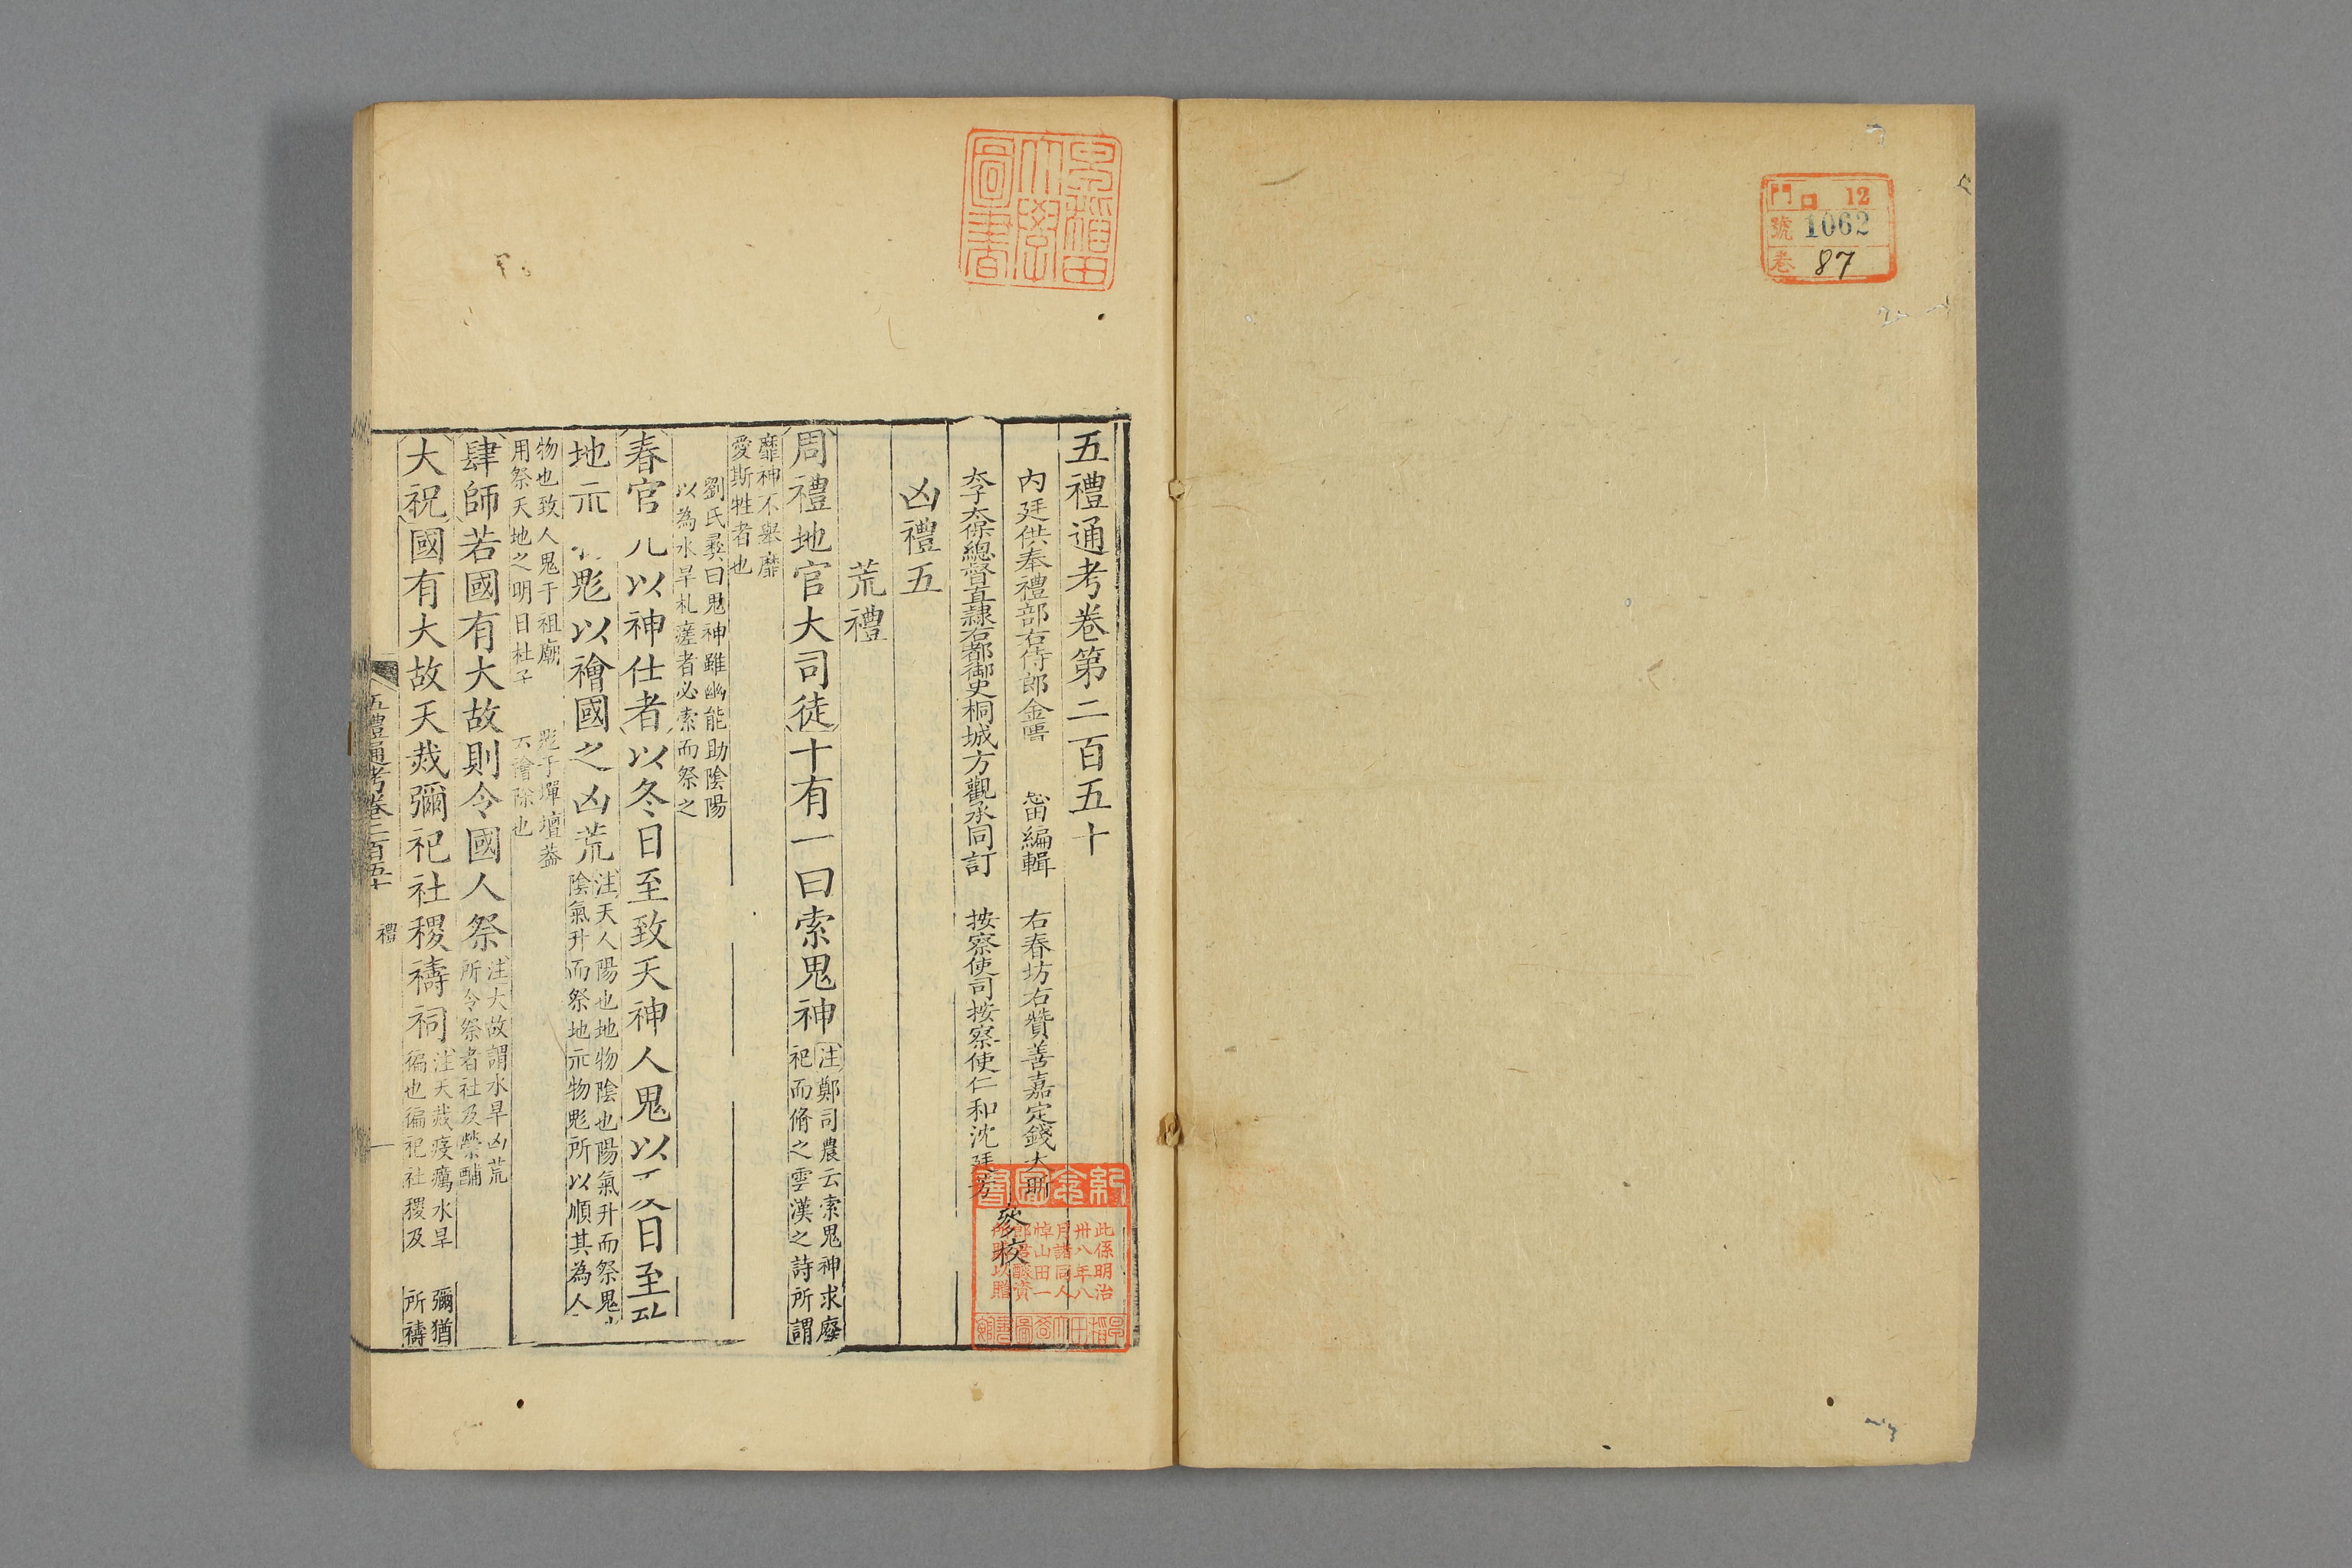 門 口 12
號 1062
卷 87
早稲田
大學
圖書
五禮通考卷第二百五十
內廷供奉禮部右侍郎金匱 蕙田編輯 右春坊右贊善嘉定錢大昕
太子太保總督直隸右都御史桐城方觀承同訂 按察使司按察使仁和沈廷芳
參校
凶禮五
荒禮
周禮地官大司徒十有一曰索鬼神
注鄭司農云索鬼神求廢
祀而脩之雲漢之詩所謂
靡神不舉靡
愛斯牲者也
劉氏彝曰鬼神雖幽能助陰陽
以為水旱札瘥者必索而祭之
春官凡以神仕者以冬日至致天神人鬼以 日至
地示 鬽以禬國之凶荒
注天人陽也地物陰也陽氣升而祭鬼
陰氣升而祭地示物鬽所以順其為人
物也致人鬼于祖廟 鬽于墠壇蓋
用祭天地之明日杜子 禬除也
肆師若國有大故則令國人祭
注大故謂水旱凶荒
所令祭者社及禜酺
大祝國有大故天烖彌祀社稷禱祠
注天烖疫癘水旱 彌猶
徧也徧祀社稷及 所禱
五禮通考卷二百五十 禮 一
此係明治
卅八年八
月諸同人
悼山田一
郎君醵資
所購以贈